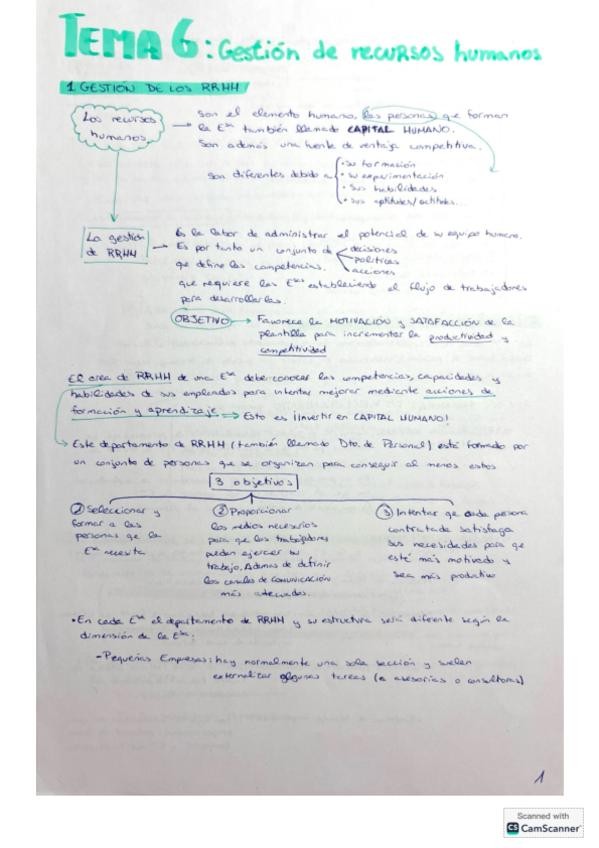 TEMA 6: Gestión de recursos humanos
1. GESTIÓN DE LOS RRHH
Los recursos humanos
→ Son el elemento humano, las personas que forman
la Esa también llamado CAPITAL HUMANO.
Son además una fuente de ventaja competitiva.
Son diferentes debido a
• su formación
• su experimentación
• sus habilidades
• sus aptitudes/actitudes...
La gestión de RRHH
→ Es la labor de administrar el potencial de su equipo humano.
Es por tanto un conjunto de
decisiones
políticas
acciones
que define las competencias.
que requiere las Esas estableciendo el flujo de trabajadores
para desarrollarlas.
OBJETIVO → Favorece la MOTIVACIÓN y SATISFACCIÓN de la
plantilla para incrementar la productividad y
competitividad
El area de RRHH de una Esa debe conocer las competencias, capacidades y
habilidades de sus empleados para intentar mejorar mediante acciones de
formación y aprendizaje → Esto es ¡Invertir en CAPITAL HUMANO!
Este departamento de RRHH (también llamado Dto. de Personal) está formado por
un conjunto de personas que se organizan para conseguir al menos estos
3 objetivos
① Seleccionar y
formar a las
personas que la
Esa necesita
② Proporcionar
los medios necesarios
para que los trabajadores
puedan ejercer su
trabajo. Ademas de definir
los canales de COMUNICACIÓN
más adecuados.
③ Intentar que cada persona
contratada satisfaga
sus necesidades para que
esté más motivado y
sea más productivo
• En cada Esa el departamento de RRHH y su estructura será diferente según la
dimensión de la Esa:
- Pequeñas Empresas: hay normalmente una sola sección y suelen
externalizar algunas tareas (a asesorías o consultoras)
1
Scanned with
CS CamScanner